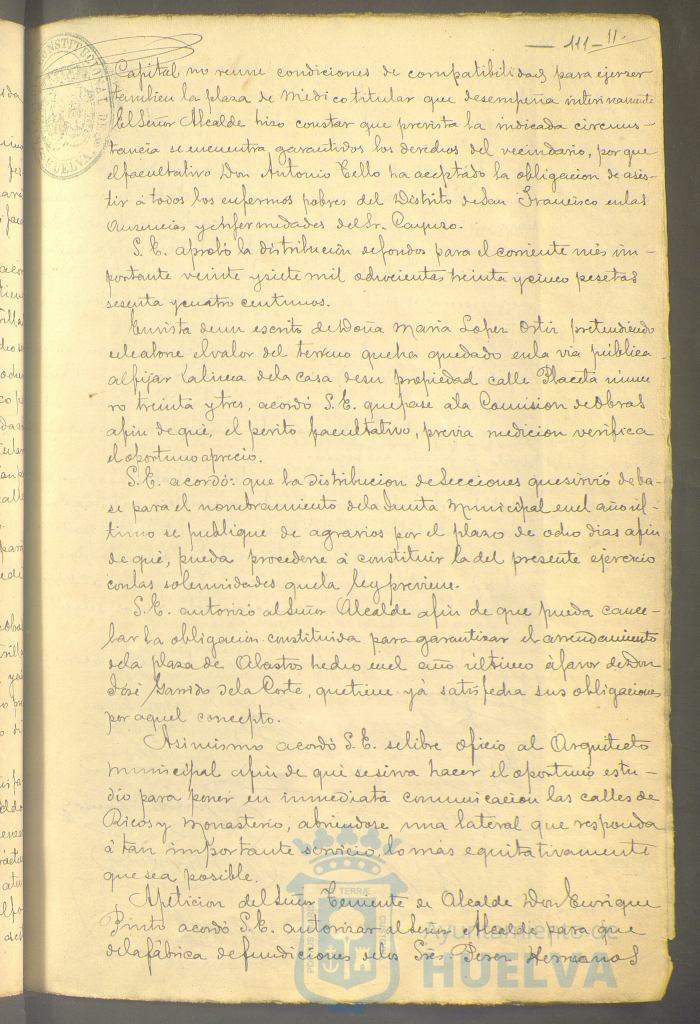 — 111 – 11.
Capital no reune condiciones de compatibilidad, para ejerzer
tambien la plaza de Medico titular que desempeña interinamente
El Señor Alcalde hizo constar que prevista la indicada circuns-
tancia se encuentra garantidos los derechos del vecindario, por que
el facultativo Don Antonio Tello ha aceptado la obligacion de asis-
tir á todos los enfermos pobres del Distrito de San Francisco en las
Ausencias y enfermedades del Sr.
S. E. aprobó la distribucion de fondos para el corriente mes im-
portante veinte y siete mil ochocientas treinta y cinco pesetas
sesenta y cuatro centimos.
En vista de un escrito de Doña Maria Lopez Ortiz pretendiendo
se le abone el valor del terreno que ha quedado en la via pública
al fijar la linea de la casa de su propiedad calle Placeta núme
ro treinta y tres, acordó S. E. que pase á la Comision de Obras
afin de que, el perito facultativo, previa medicion verifica
el oportuno aprecio.
S. E. acordó: que la distribucion de Secciones que sirvió de ba-
se para el nombramiento de la Junta Municipal en el año úl-
timo se publique de agrarios por el plazo de ocho dias afin
de que, pueda procederse á constituir la del presente ejercicio
con las solemnidades que la ley previene.
S. E. autorizó al Señor Alcalde afin de que pueda cance-
lar la obligacion constituida para garantizar el arrendamiento
de la plaza de Abastos hecho en el año último á favor de Don
José Garrido de la Corte, que tiene yá satisfecha sus obligaciones
por aquel concepto.
Asimismo acordó S. E. se libre oficio al Arquitecto
municipal afin de que se sirva hacer el oportuno estu-
dio para poner en inmediata comunicacion las calles de
Ricos y Monasterio, abriendose una lateral que responda
á tan importante servicio, lo más equitativamente
que sea posible.
A peticion del Señor Teniente de Alcalde Don Enrique
Pinto acordó S. E. autorizar al Señor Alcalde para que
de la fábrica de fundiciones de los Sres Perez Hermanos
Ayuntamiento de
HUELVA